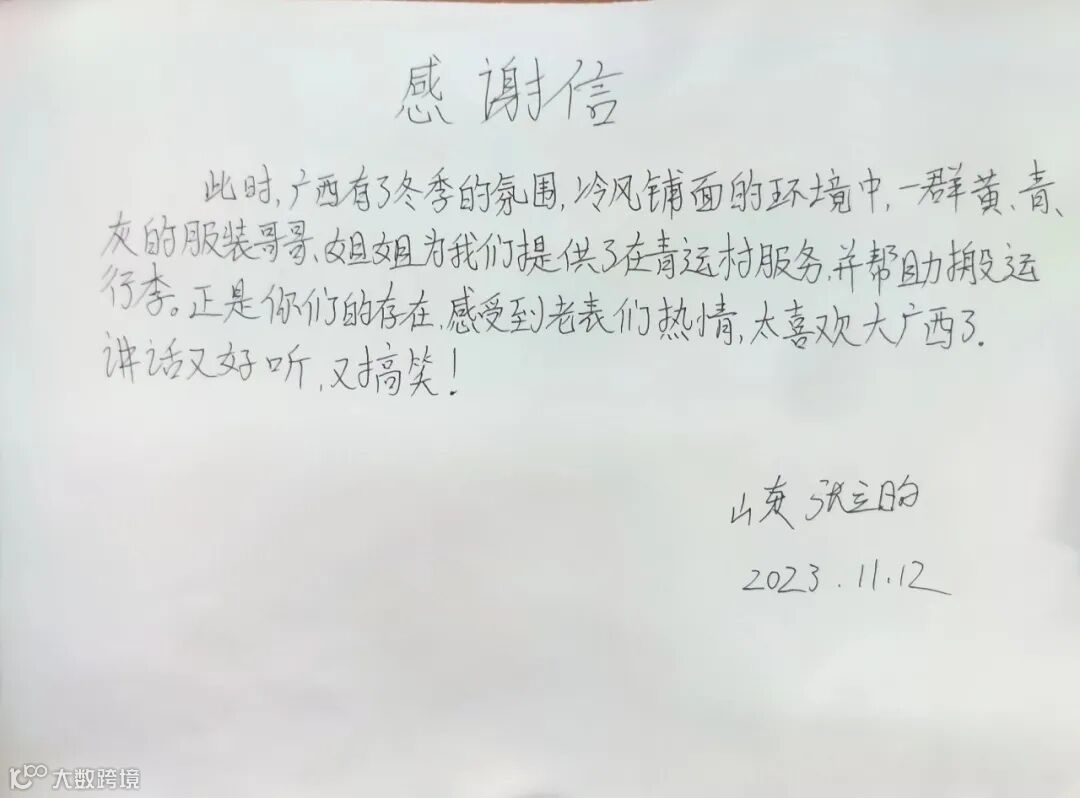 感谢信
此时,广西有了冬季的氛围,冷风铺面的环境中,一群黄、青、
灰的服装哥哥、姐姐为我们提供了在青运村服务,并帮助搬运
行李。正是你们的存在,感受到老表们热情,太喜欢大广西了.
讲话又好听,又搞笑!
山东 张立昀
2023.11.12
大数跨境